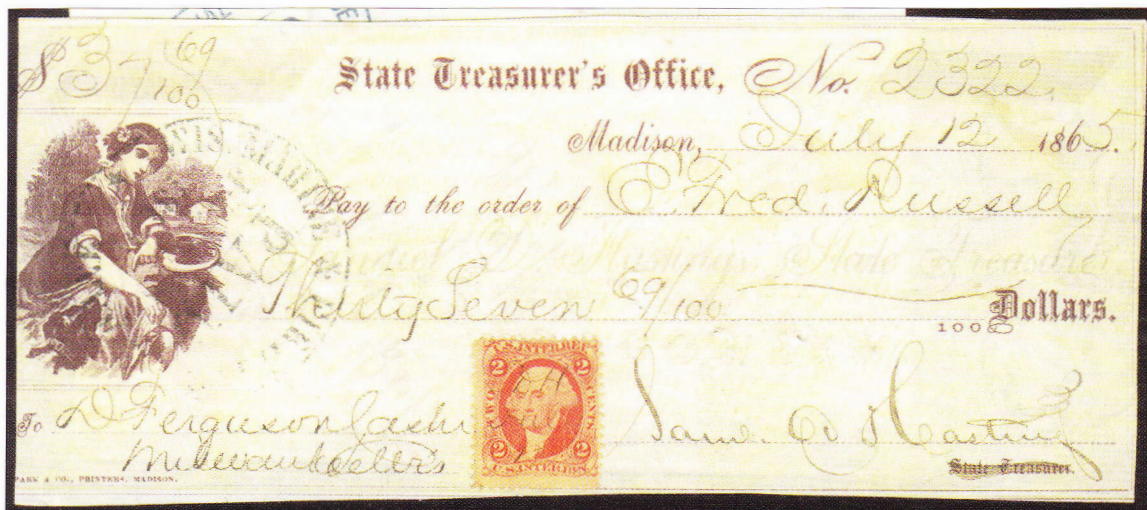 $37 69/100
State Treasurer's Office, No. 2322
Madison, July 12 1865.
Pay to the order of E. Fred. Russell
Thirty Seven 69/100 Dollars.
100
U.S. INTER. REV.
2 2
TWO CENTS
2 2
To D Ferguson Cashr
Milwaukee Wis
Saml. D Hastings
State Treasurer.
PARK & CO., PRINTERS, MADISON.